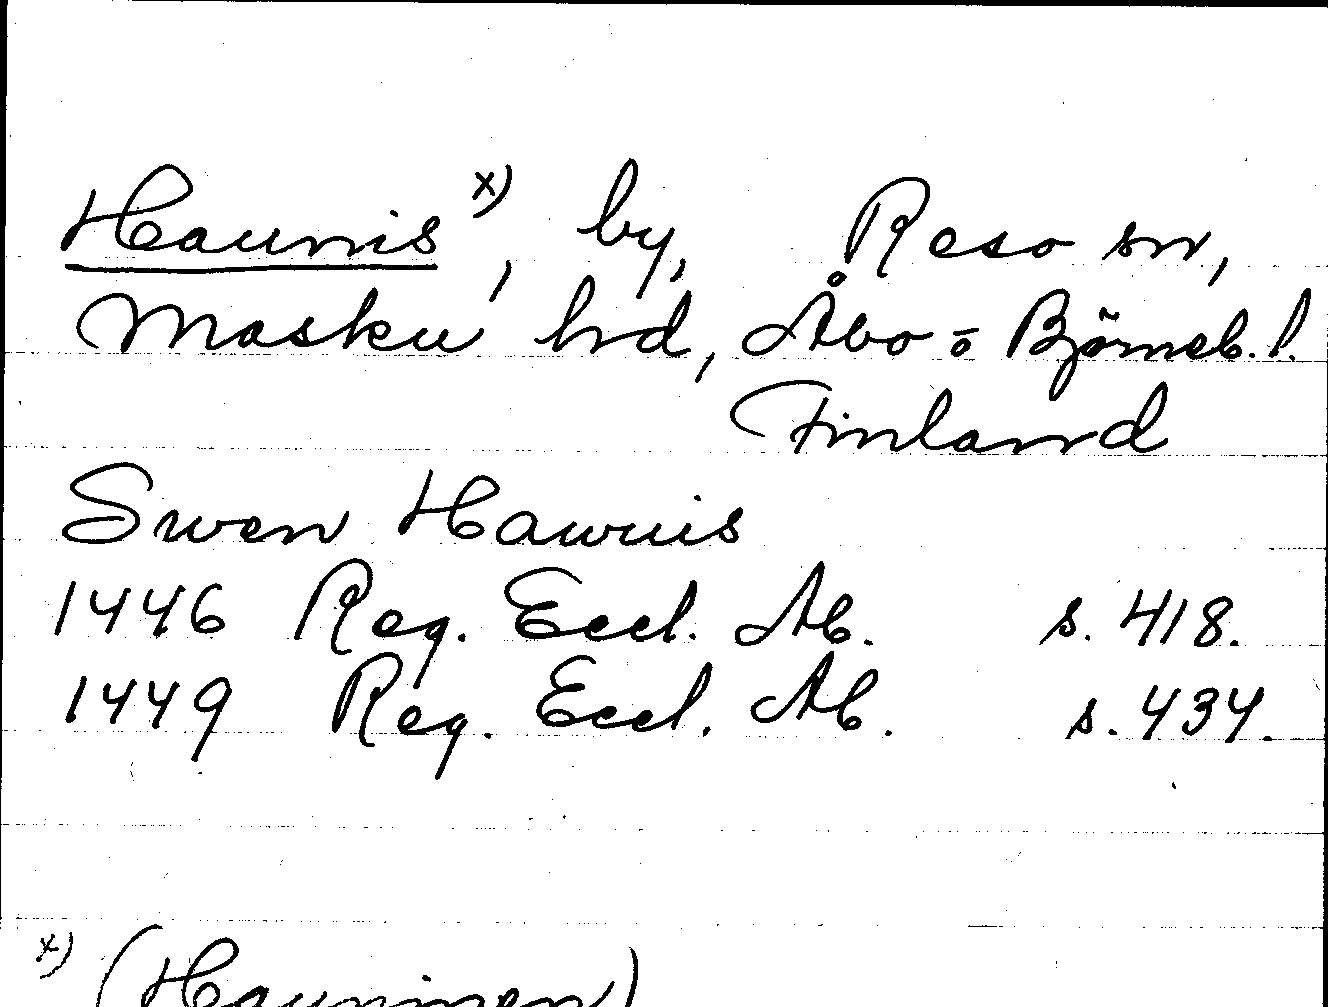 Haunis x), by, Reso sn,
Masku hd, Åbo = Björneb. l.
Finland
Swen Hawnis
1446 Reg. Eccl. Ab. s. 418.
1449 Reg. Eccl. Ab. s. 434.
x) (Hauninen)